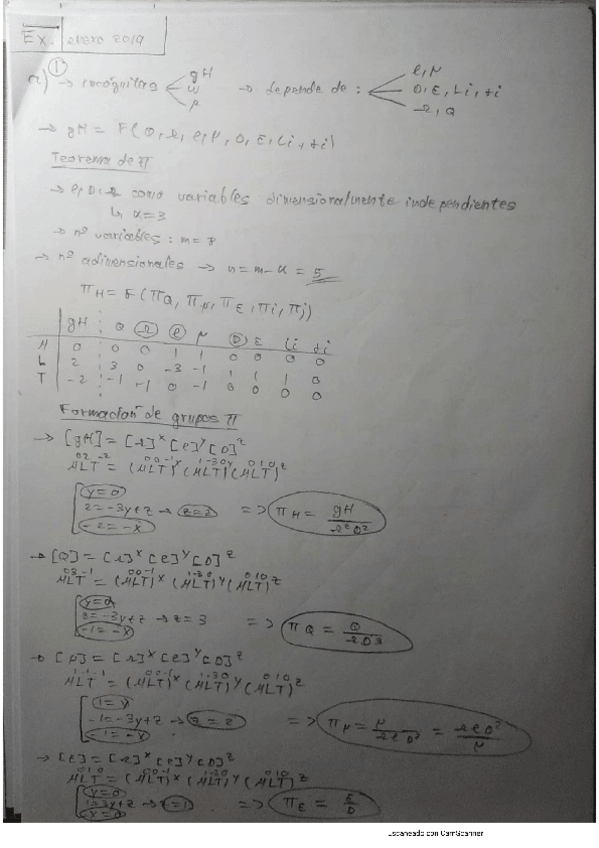 Ex. enero 2019
①
a) → incógnitas gH → depende de : e, μ
w D, E, Li, αi
p Ω, Q
→ gH = F(D, Ω, e, μ, D, E, Li, αi)
Teorema de π
→ e, D, Ω como variables dimensionalmente independientes
↳ k=3
→ nº variables : m= 8
→ nº adimensionales → n=m-k = 5
πH = F(πQ, πμ, πE, πi, πj)
gH Q Ω e μ D E Li αi
M 0 0 0 1 1 0 0 0 0
L 2 3 0 -3 -1 1 1 1 0
T -2 -1 -1 0 -1 0 0 0 0
Formación de grupos π
→ [gH] = [Ω]^x [e]^y [D]^z
M⁰L²T⁻² = (M⁰L⁰T⁻¹)^x (M¹L⁻³T⁰)^y (M⁰L¹T⁰)^z
y=0
2=-3y+z → z=2 => πH = gH / Ω²D²
-2=-x
→ [Q] = [Ω]^x [e]^y [D]^z
M⁰L³T⁻¹ = (M⁰L⁰T⁻¹)^x (M¹L⁻³T⁰)^y (M⁰L¹T⁰)^z
y=0
3=-3y+z → z=3 => πQ = Q / ΩD³
-1=-x
→ [μ] = [Ω]^x [e]^y [D]^z
M¹L⁻¹T⁻¹ = (M⁰L⁰T⁻¹)^x (M¹L⁻³T⁰)^y (M⁰L¹T⁰)^z
1=y
-1=-3y+z → z=2 => πμ = μ / ΩeD² = ΩeD² / μ
-1=-x
→ [E] = [Ω]^x [e]^y [D]^z
M⁰L¹T⁰ = (M⁰L⁰T⁻¹)^x (M¹L⁻³T⁰)^y (M⁰L¹T⁰)^z
y=0
1=3y+z → z=1 => πE = E / D
y=0
Escaneado con CamScanner